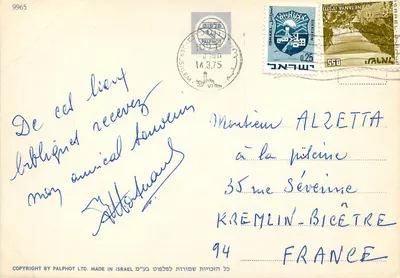 9965
PALPHOT
14.3.75
0.25
ישראל
0.55
De ces lieux
bibliques recevez
mon amical souvenir
Monsieur ALZETTA
à la piscine
35 rue Séverine
KREMLIN-BICÊTRE
94 FRANCE
COPYRIGHT BY PALPHOT LTD. MADE IN ISRAEL כל הזכויות שמורות לפלפוט בע"מ